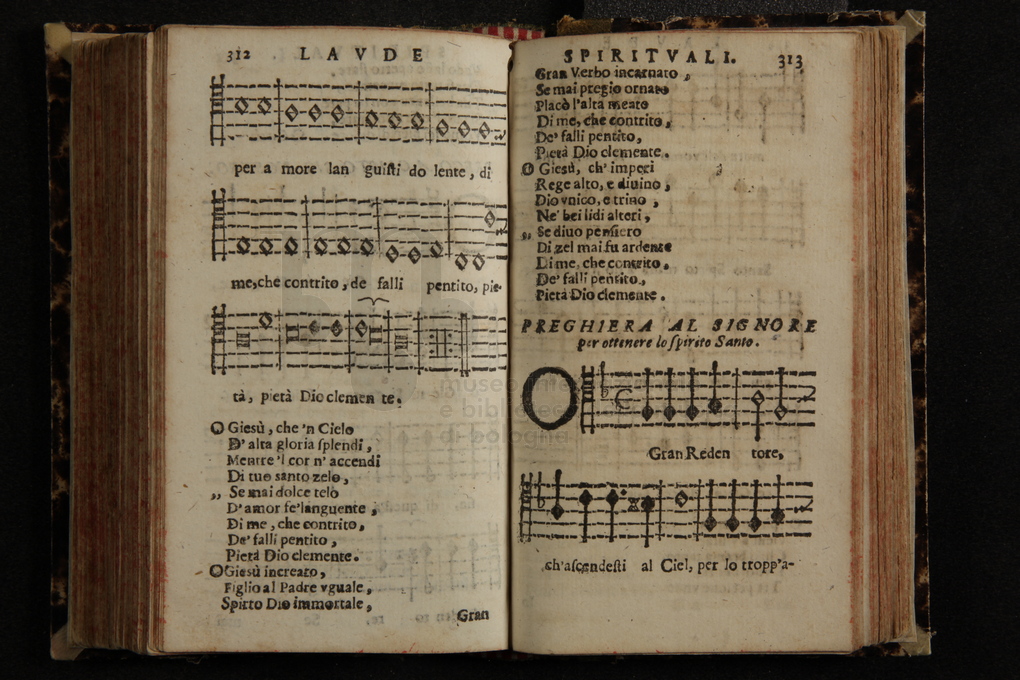 312 LAVDE
per a more lan guisti do lente, di
me, che contrito, de falli pentito, pie-
tà, pietà Dio clemen te.
O Giesù, che 'n Cielo
D' alta gloria splendi,
Mentre 'l cor n' accendi
Di tuo santo zelo,
„ Se mai dolce telo
D'amor fe' languente,
Di me, che contrito,
De' falli pentito,
Pietà Dio clemente.
O Giesù increato,
Figlio al Padre vguale,
Spirto Dio immortale,
Gran
SPIRITVALI. 313
Gran Verbo incarnato,
Se mai pregio ornato
Placò l'alta mente
Di me, che contrito,
De' falli pentito,
Pietà Dio clemente.
O Giesù, ch' imperi
Rege alto, e diuino,
Dio vnico, e trino,
Ne' bei lidi alteri,
„ Se diuo pensiero
Di zel mai fu ardente
Di me, che contrito,
De' falli pentito,
Pietà Dio clemente.
PREGHIERA AL SIGNORE
per ottenere lo spirito Santo.
O Gran Reden tore,
ch'ascendesti al Ciel, per lo tropp'a-
museo
e biblioteca
di bologna